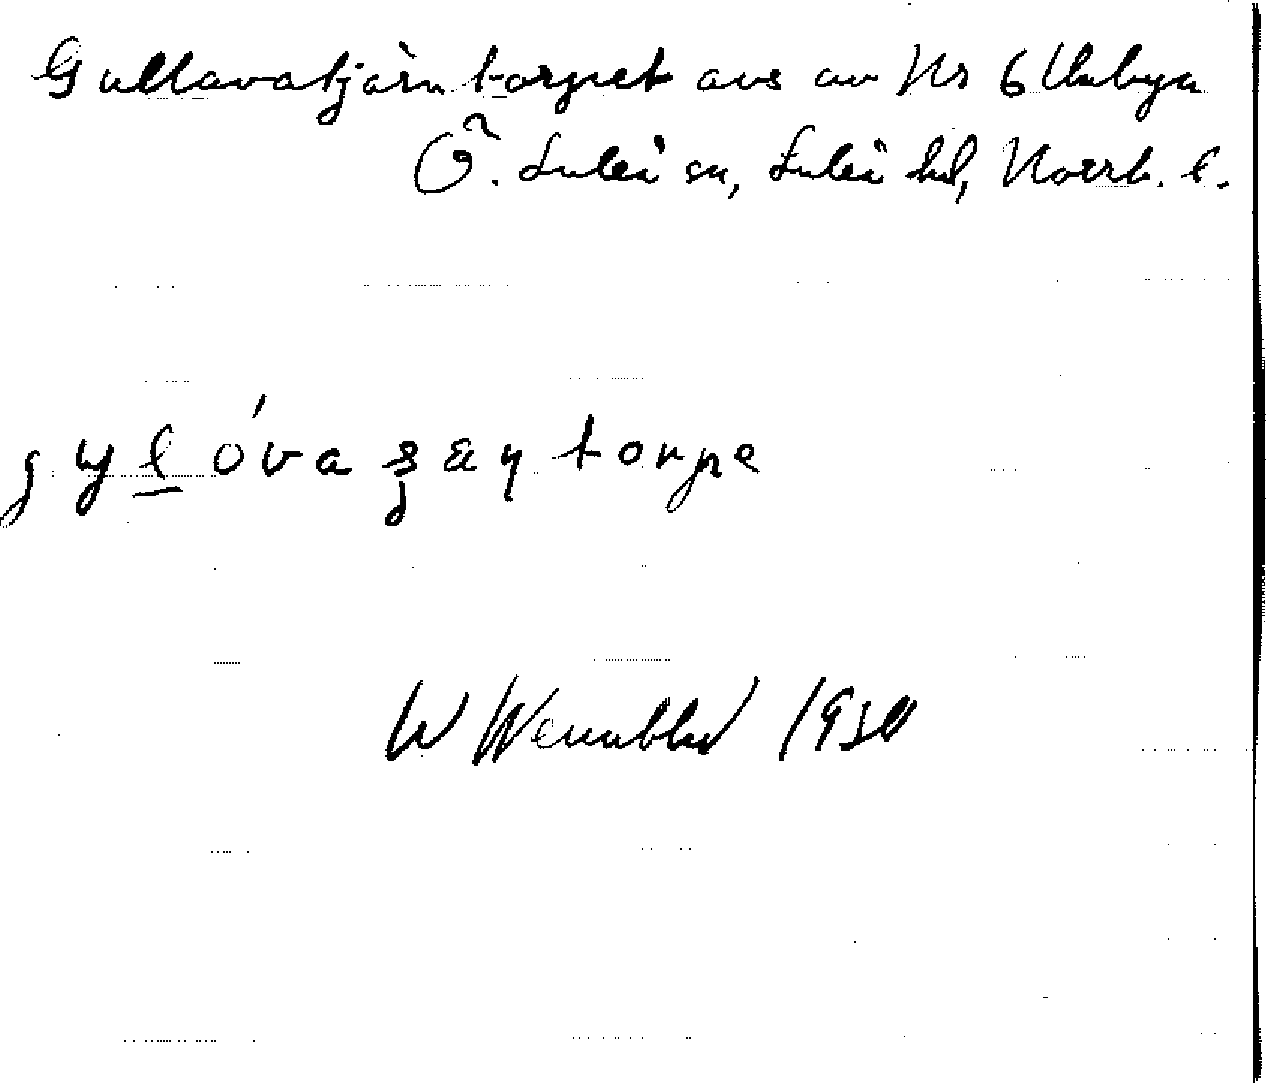 Gullavatjärntorpet avs av Nr 6 Unbyn
Ö. Luleå sn, Luleå hd, Norrb. l.
torpe
W Wennblad 1930